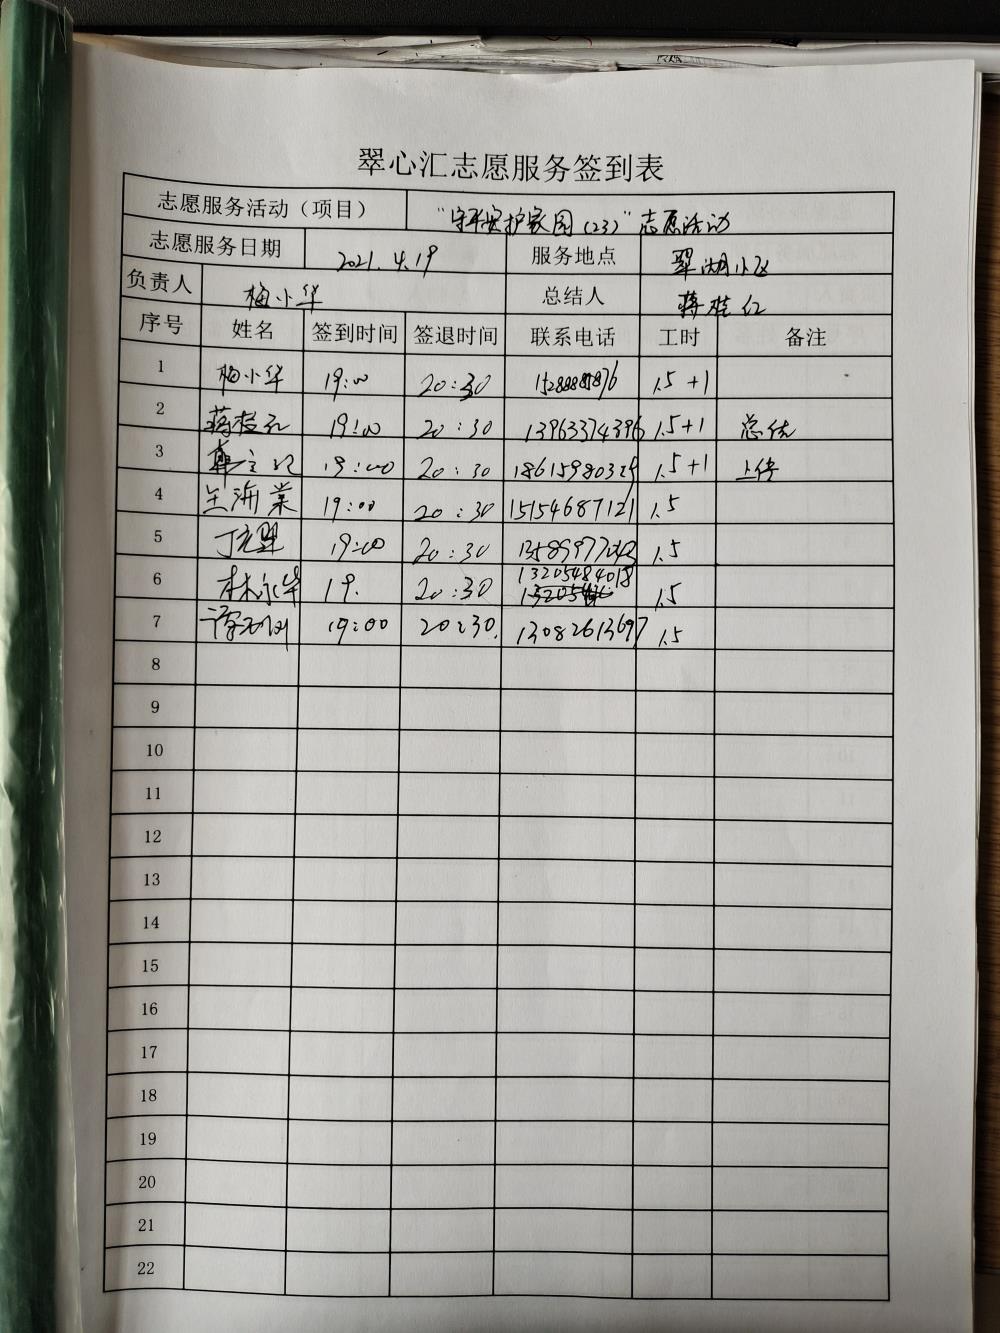 翠心汇志愿服务签到表
志愿服务活动（项目） “守平安护家园（23）”志愿活动
志愿服务日期 2021.4.19 服务地点 翠湖小区
负责人 梅小华 总结人 蒋桂红
序号 姓名 签到时间 签退时间 联系电话 工时 备注
1 梅小华 19:00 20:30 1.5+1
2 蒋桂红 19:00 20:30 13963374396 1.5+1 总结
3 19:00 20:30 1.5+1 上传
4 海棠 19:00 20:30 15154687121 1.5
5 19:00 20:30 1.5
6 林永华 19. 20:30 13205484018 1.5
7 19:00 20:30. 13082613697 1.5
8
9
10
11
12
13
14
15
16
17
18
19
20
21
22